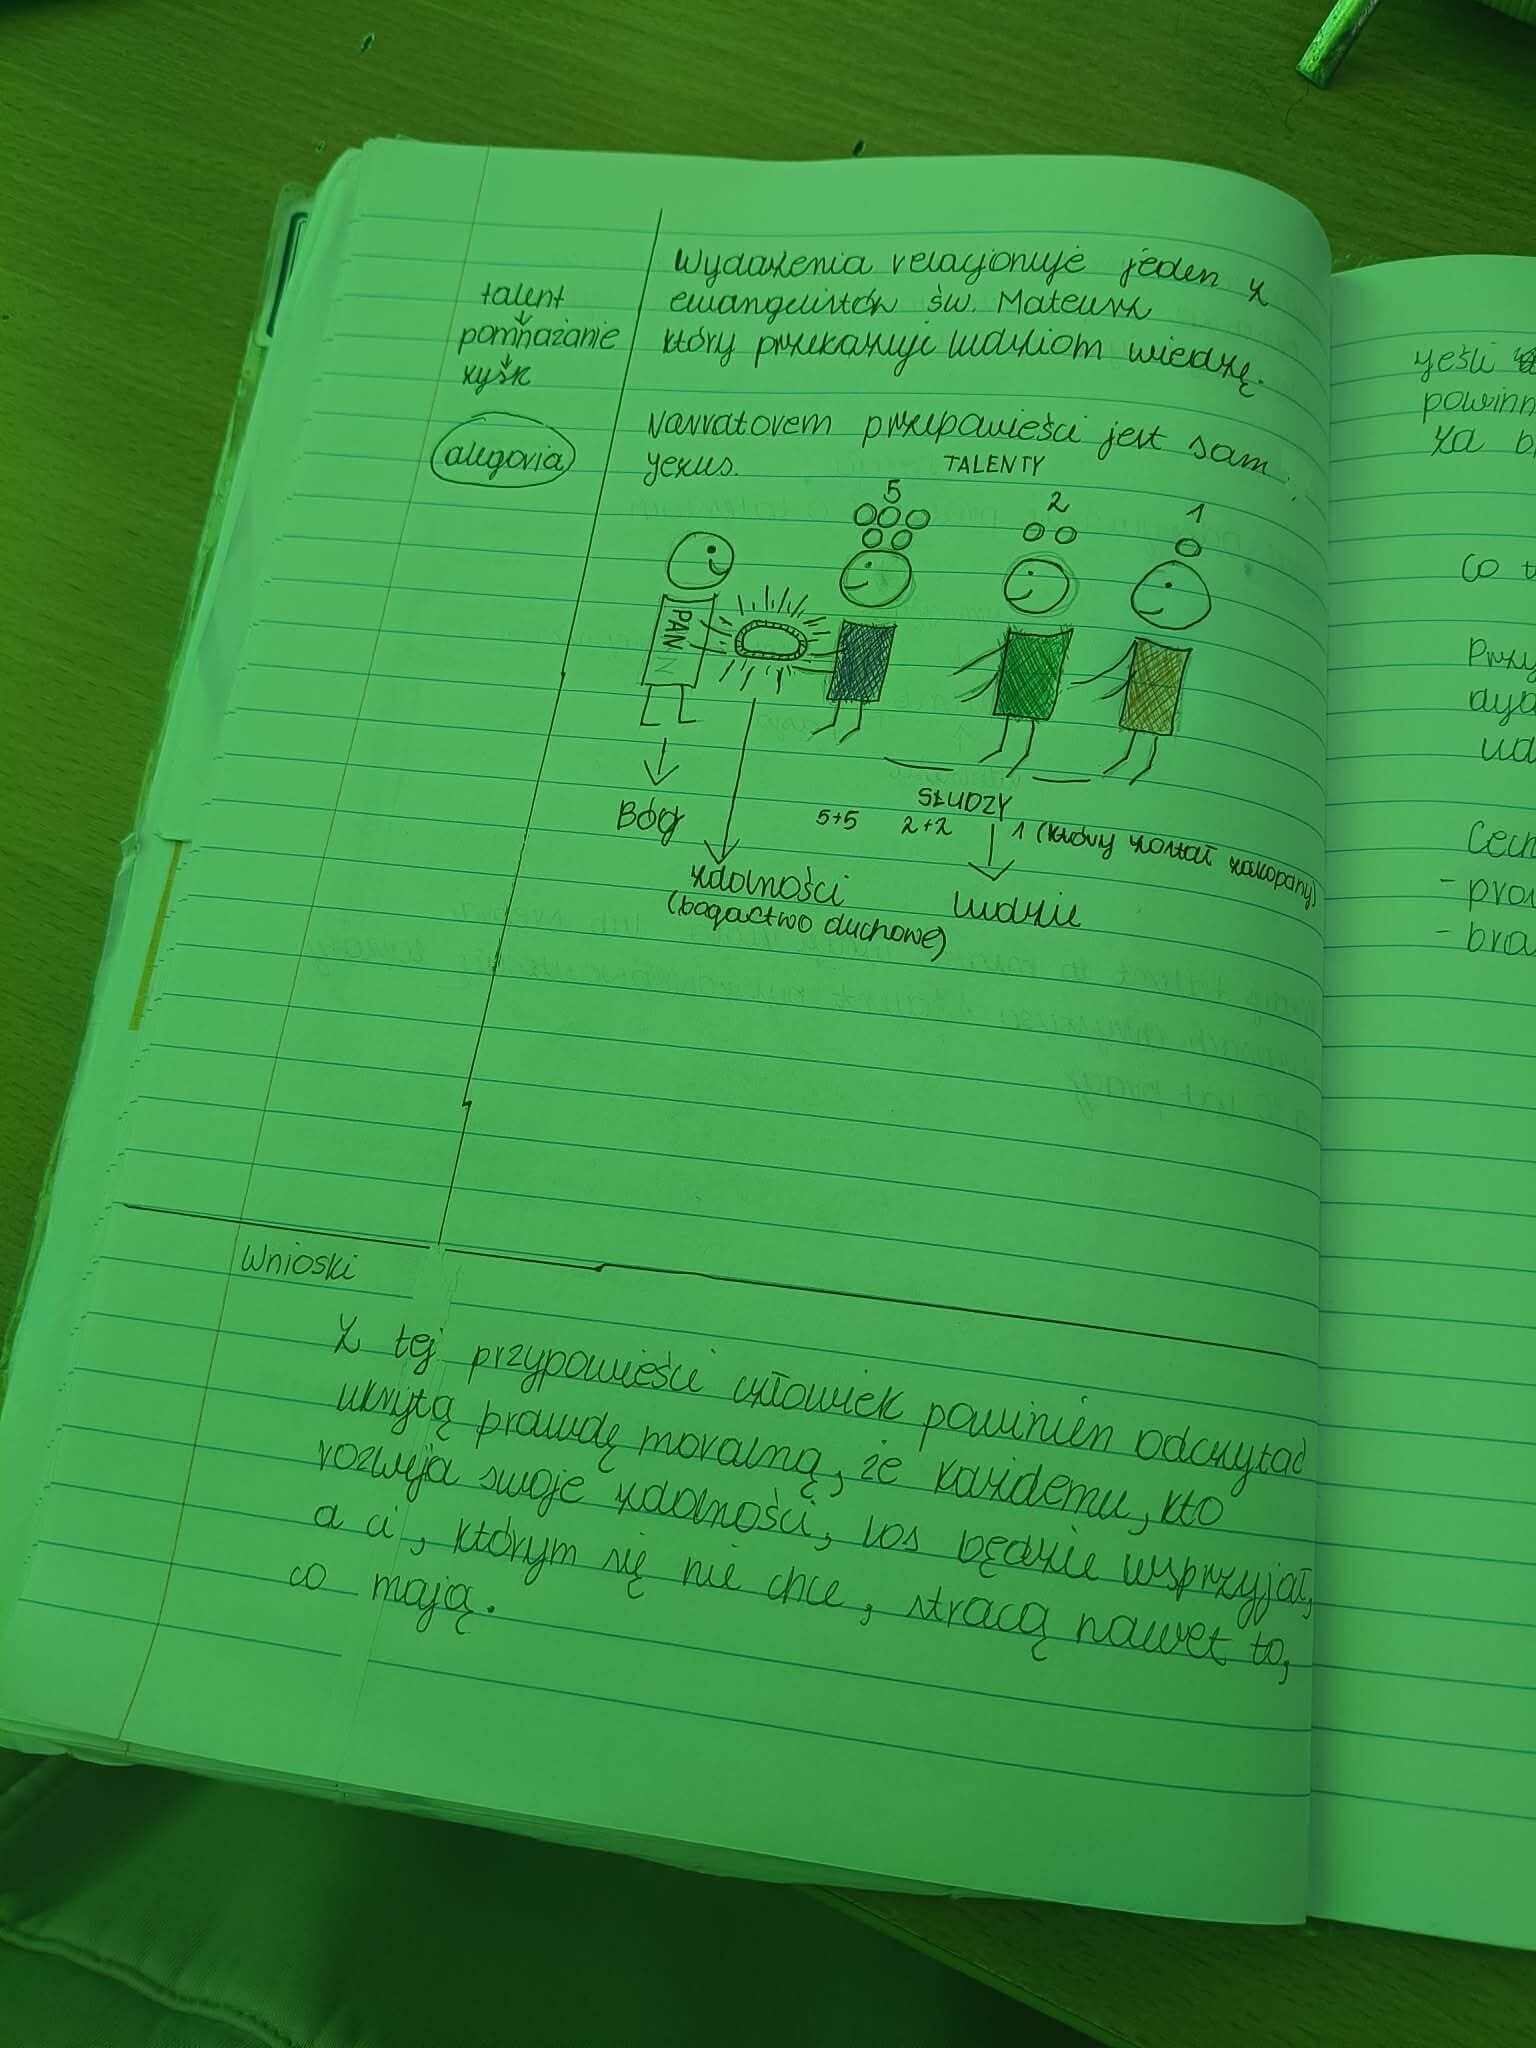 talent
pomnażanie
zysk
alegoria
Wydażenia relacjonuje jeden z
ewangelistów św. Mateusz
który przekazuje ludziom wiedzę.
Narratorem przepowieści jest sam
Jezus.
TALENTY
5
2
1
PAN
SŁUDZY
Bóg
5+5 2+2 1 (który został zakopany)
zdolności
(bogactwo duchowe)
ludzie
Wnioski
Z tej przypowieści człowiek powinien odczytać
ukrytą prawdę moralną, że każdemu, kto
rozwija swoje zdolności, los będzie wsprzyjał,
a ci, którym się nie chce, stracą nawet to,
co mają.
jeśli
powinn
za b
co
Przy
dya
Cech
- pro
- bra